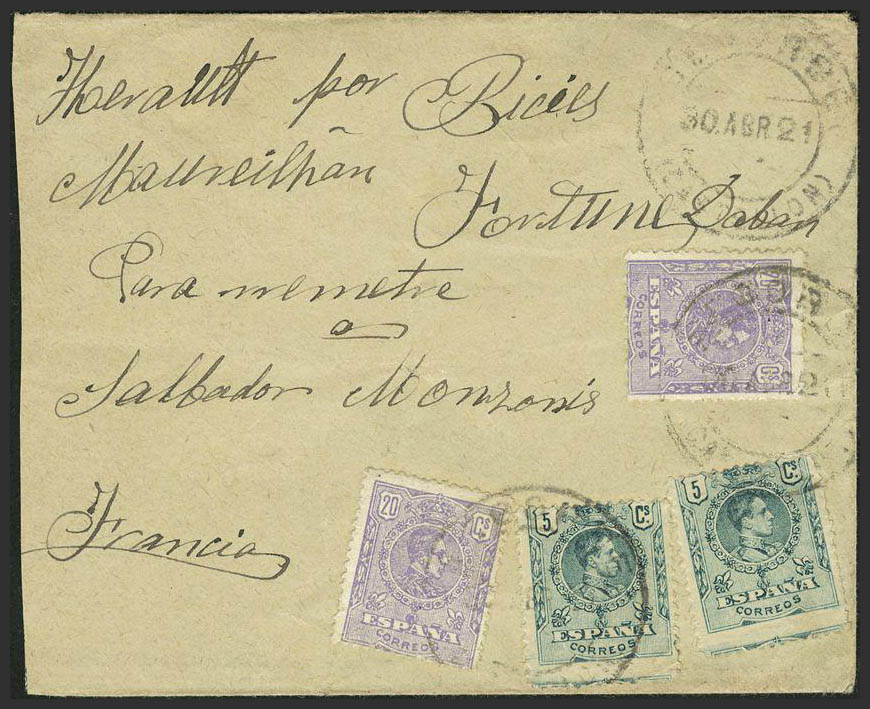 Herault por Bicies
Maureilhãn
Fortune Laban
Para remetre
a
Salbador Monzonis
Francia
30 ABR 21
20 Cs
ESPAÑA
CORREOS
20 Cs
ESPAÑA
CORREOS
5 Cs
ESPAÑA
CORREOS
5 Cs
ESPAÑA
CORREOS